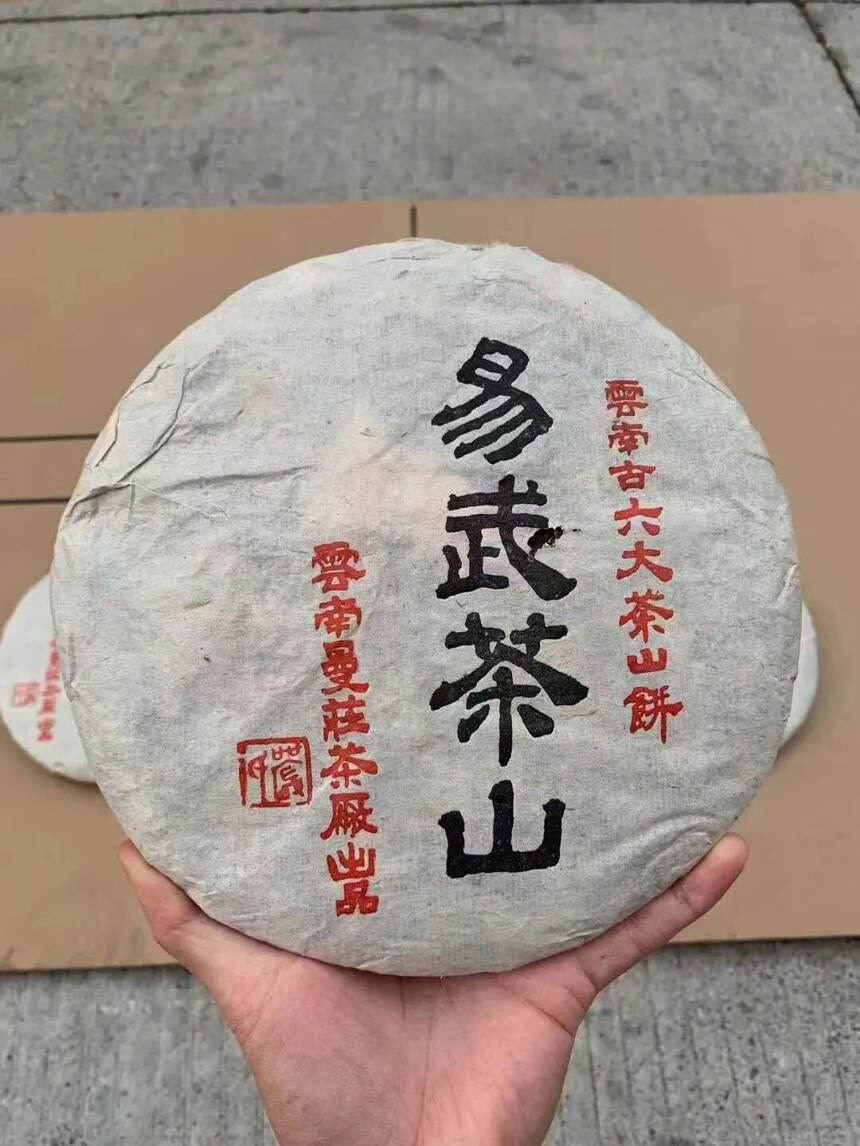 雲南古六大茶山餅
易武茶山
雲南曼莊茶厰出品